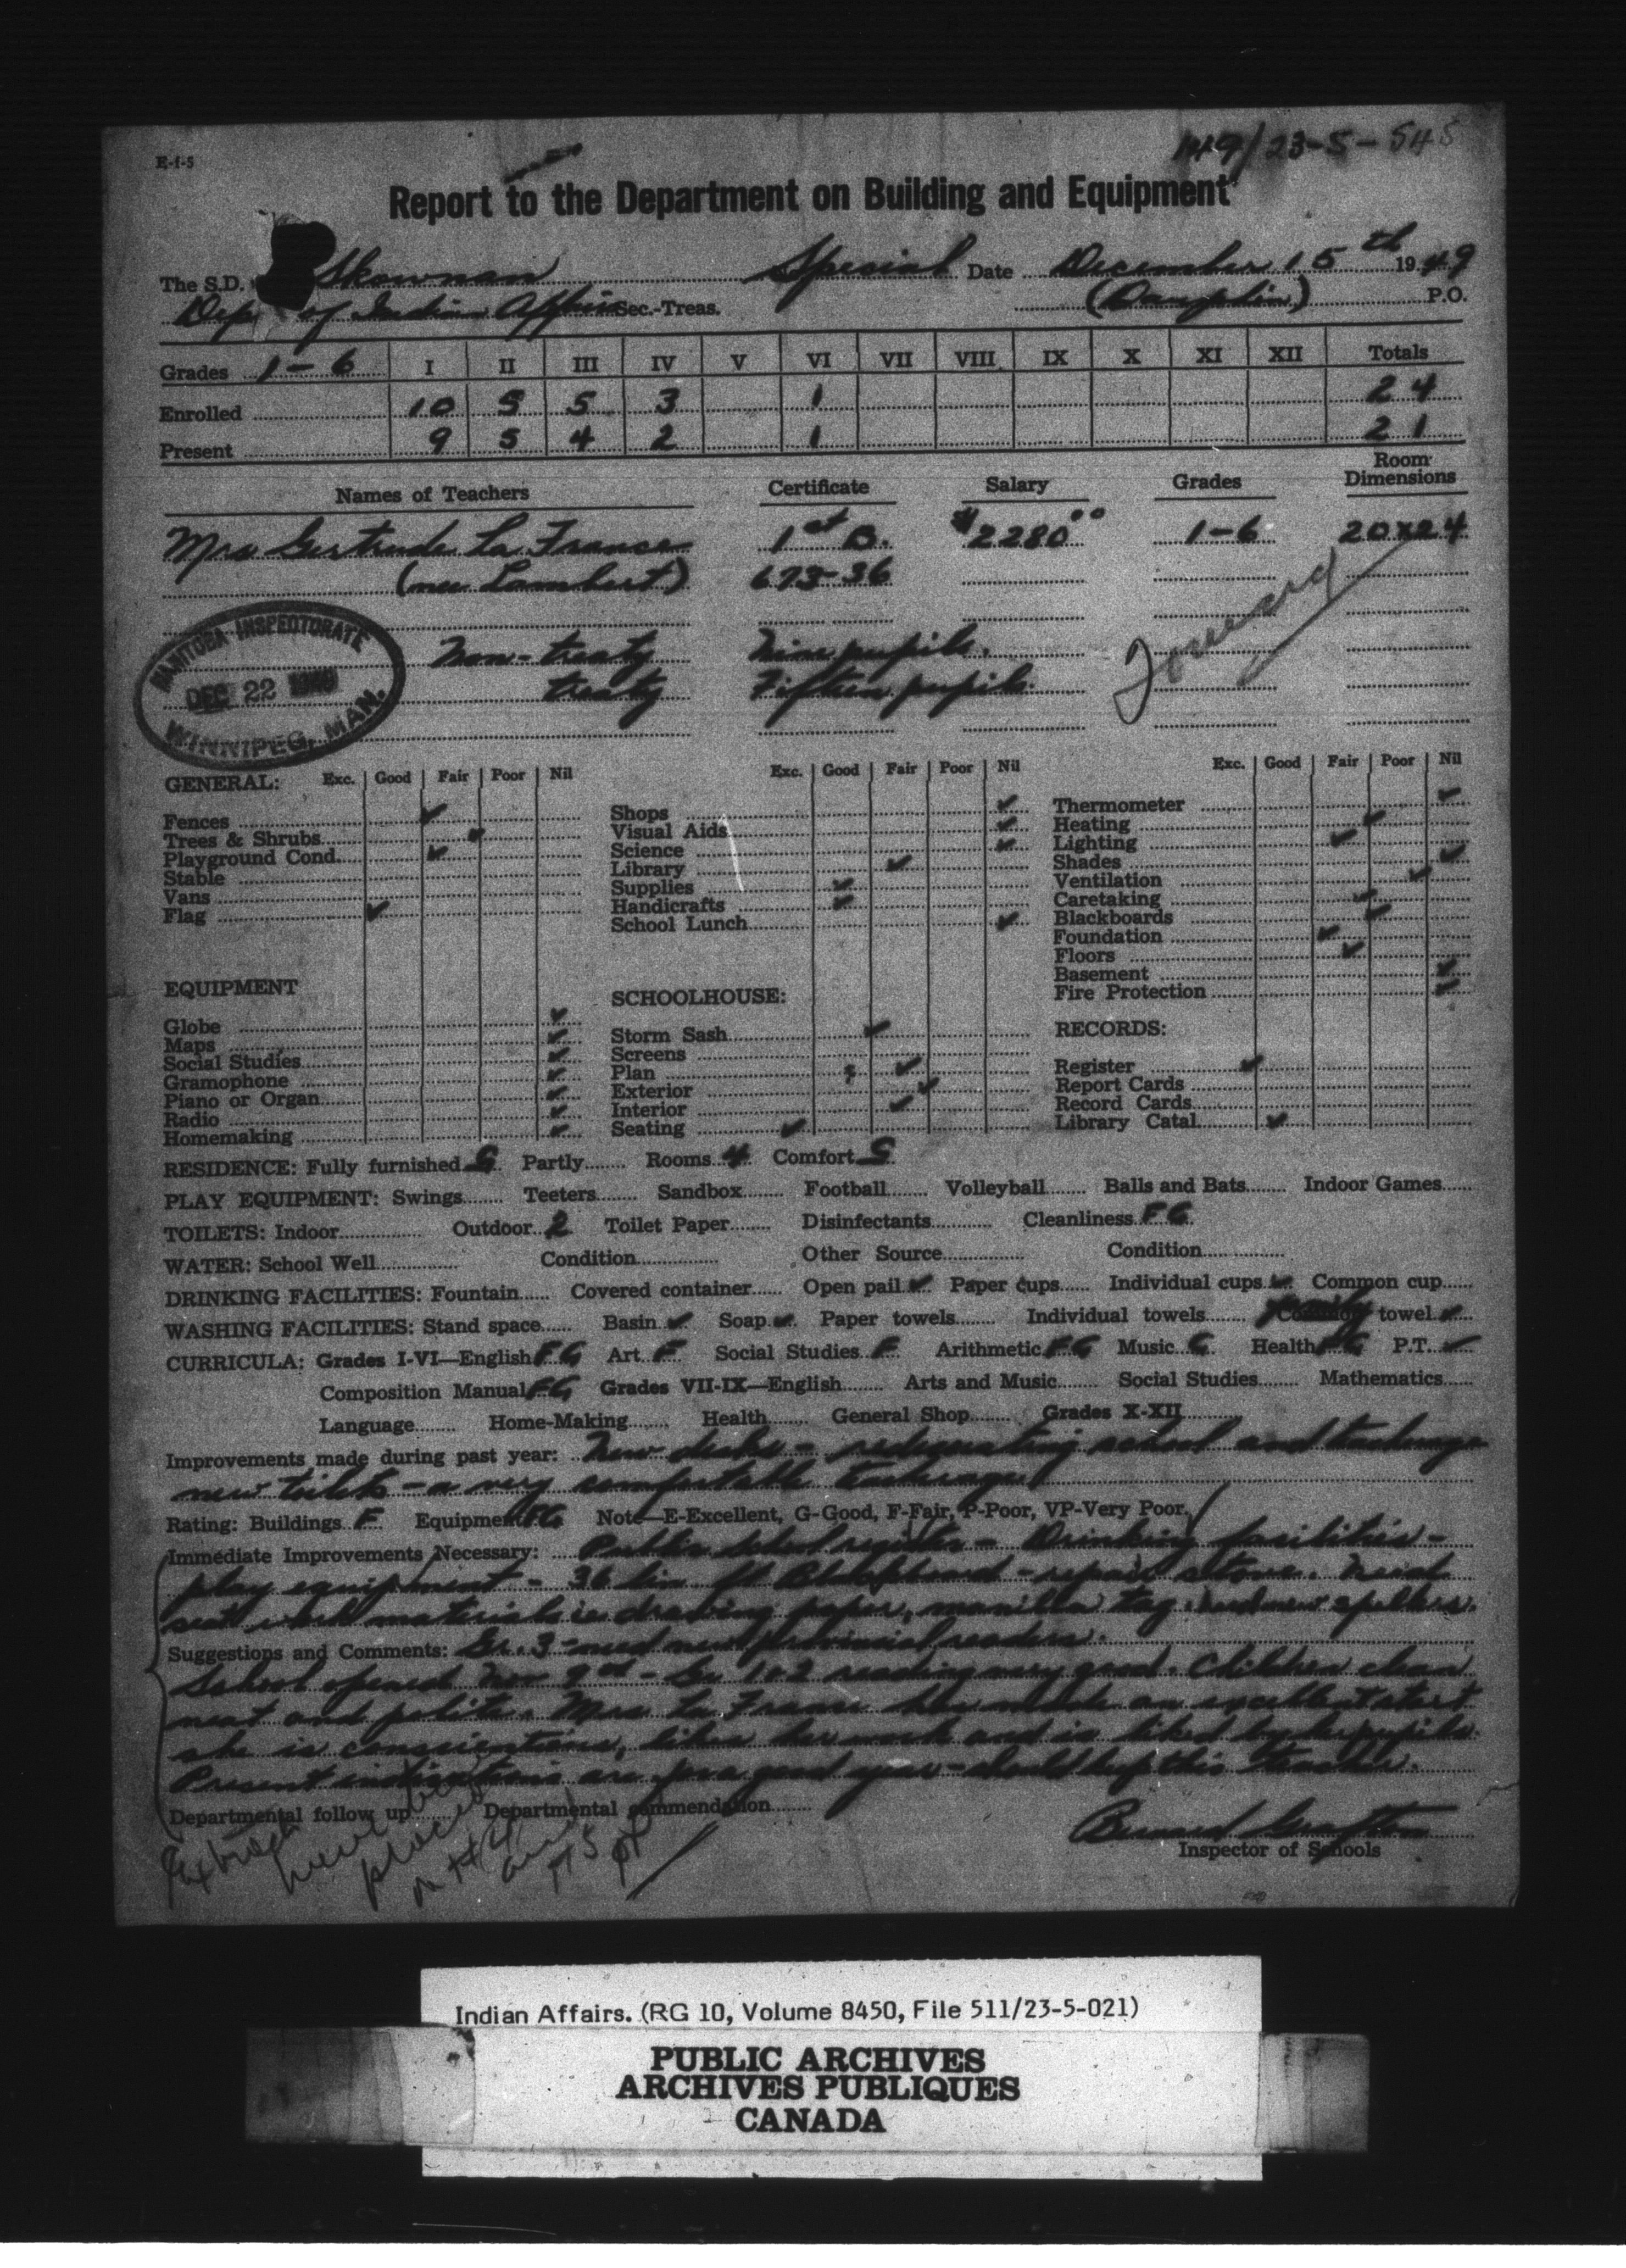 E-1-5
149/23-5-545
Report to the Department on Building and Equipment
The S.D. Skownan Special Date December 15th 1949
Dep of Indian Affairs Sec.-Treas. (Dauphin) P.O.
Grades 1-6 I II III IV V VI VII VIII IX X XI XII Totals
Enrolled 10 5 5 3 1 24
Present 9 5 4 2 1 21
Names of Teachers Certificate Salary Grades Room Dimensions
Mrs Gertrude La France 1st B. $2280.00 1-6 20x24
(nee Lambert) 673-36
Non-treaty Nine pupils.
treaty Fifteen pupils.
MANITOBA INSPECTORATE
DEC 22 1949
WINNIPEG, MAN.
GENERAL: Exc. Good Fair Poor Nil
Fences ✓
Trees & Shrubs ✓
Playground Cond. ✓
Stable
Vans
Flag ✓
EQUIPMENT
Globe ✓
Maps ✓
Social Studies ✓
Gramophone ✓
Piano or Organ ✓
Radio ✓
Homemaking ✓
Exc. Good Fair Poor Nil
Shops ✓
Visual Aids ✓
Science ✓
Library ✓
Supplies ✓
Handicrafts ✓
School Lunch ✓
SCHOOLHOUSE:
Storm Sash ✓
Screens
Plan ✓
Exterior ✓
Interior ✓
Seating ✓
Exc. Good Fair Poor Nil
Thermometer ✓
Heating ✓
Lighting ✓
Shades ✓
Ventilation ✓
Caretaking ✓
Blackboards ✓
Foundation ✓
Floors ✓
Basement ✓
Fire Protection ✓
RECORDS:
Register ✓
Report Cards
Record Cards
Library Catal. ✓
RESIDENCE: Fully furnished G Partly Rooms 4 Comfort G
PLAY EQUIPMENT: Swings Teeters Sandbox Football Volleyball Balls and Bats Indoor Games
TOILETS: Indoor Outdoor 2 Toilet Paper Disinfectants Cleanliness FG
WATER: School Well Condition Other Source Condition
DRINKING FACILITIES: Fountain Covered container Open pail ✓ Paper cups Individual cups ✓ Common cup
WASHING FACILITIES: Stand space Basin ✓ Soap ✓ Paper towels Individual towels Common towel ✓
CURRICULA: Grades I-VI—English FG Art F Social Studies F Arithmetic FG Music G Health FG P.T. ✓
Composition Manual FG Grades VII-IX—English Arts and Music Social Studies Mathematics
Language Home-Making Health General Shop Grades X-XII
Improvements made during past year: New desks - redecorating school and teacherage
new toilets - a very comfortable teacherage
Rating: Buildings F Equipment FG Note—E-Excellent, G-Good, F-Fair, P-Poor, VP-Very Poor.
Immediate Improvements Necessary: Public School register - Drinking facilities -
play equipment - 36 lin. ft Blackboard - repair stove. Need
seat work materials ie drawing paper, manilla tag. Need new spellers.
Suggestions and Comments: Gr. 3 - need new provincial readers.
School opened Nov 9th - Gr 1 & 2 reading very good. Children clean
neat and polite. Mrs La France has made an excellent start
she is conscientious, likes her work and is liked by her pupils.
Present indications are for a good year - should keep this teacher.
Departmental follow up Departmental commendation
Extracts
have been
placed
on #4,
and
#5 pt
Bernard Grafton
Inspector of Schools
Indian Affairs. (RG 10, Volume 8450, File 511/23-5-021)
PUBLIC ARCHIVES
ARCHIVES PUBLIQUES
CANADA